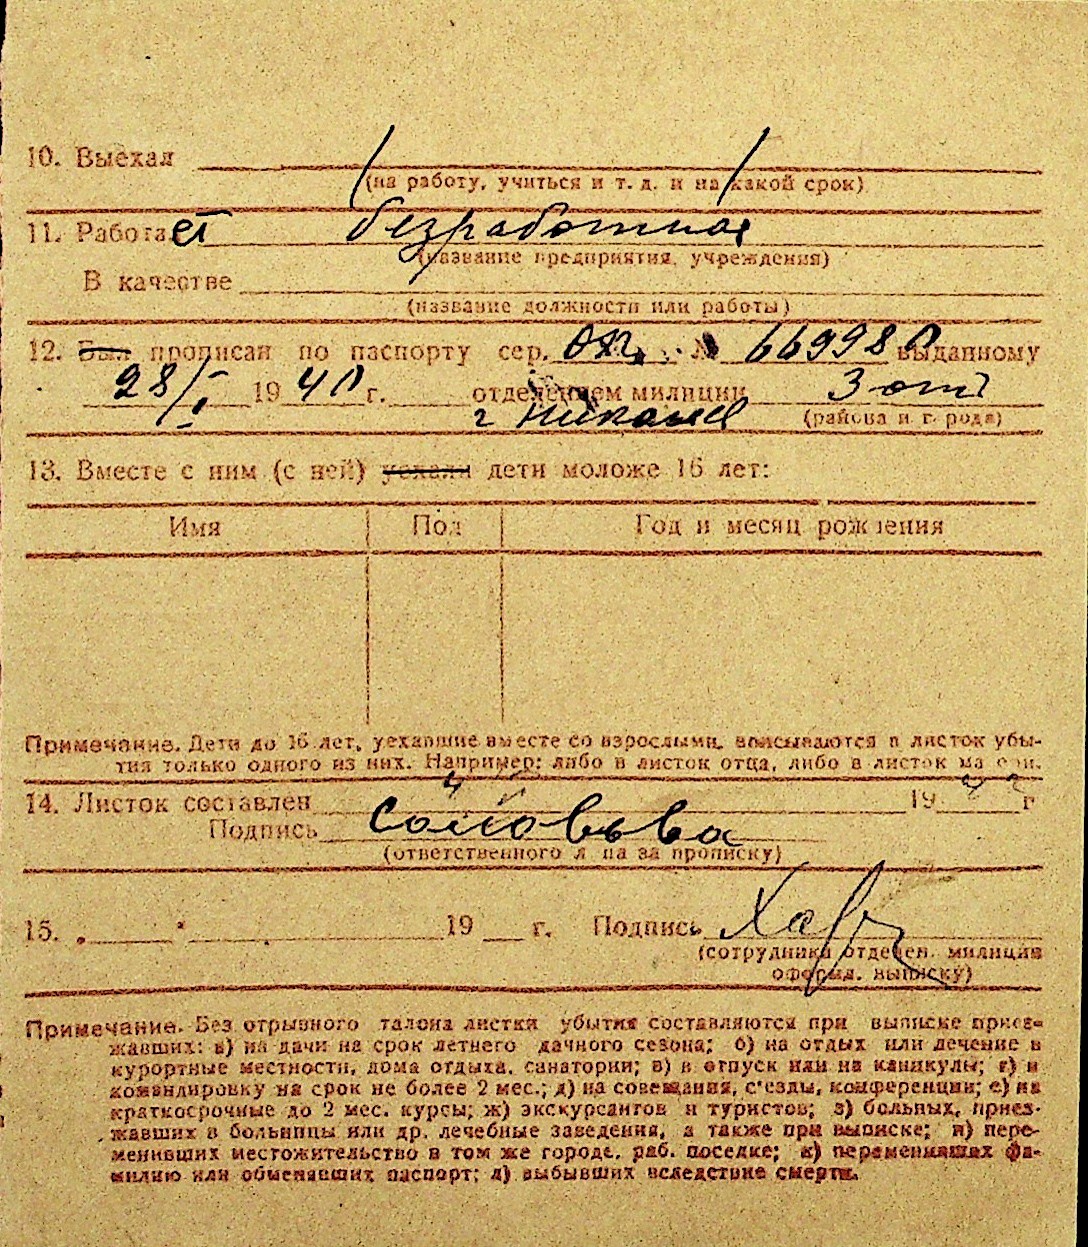 10. Выехал
(на работу, учиться и т. д. и на какой срок)
11. Работает безработная
(название предприятия, учреждения)
В качестве
(название должности или работы)
12. Был прописан по паспорту сер. № выданному
28/I 1940 г. отделением милиции 3 отд
г (района и города)
13. Вместе с ним (с ней) уехали дети моложе 16 лет:
Имя Пол Год и месяц рождения
Примечание. Дети до 16 лет, уехавшие вместе со взрослыми, вписываются в листок убы-
тия только одного из них. Например: либо в листок отца, либо в листок матери.
14. Листок составлен 19 г
Подпись
(ответственного лица за прописку)
15. 19 г. Подпись
(сотрудника отделен. милиции
оформл. выписку)
Примечание. Без отрывного талона листки убытия составляются при выписке приез-
жавших: а) на дачи на срок летнего дачного сезона; б) на отдых или лечение в
курортные местности, дома отдыха, санатории; в) в отпуск или на каникулы; г) в
командировку на срок не более 2 мес.; д) на совещания, с'езды, конференции; е) на
краткосрочные до 2 мес. курсы; ж) экскурсантов и туристов; з) больных, приез-
жавших в больницы или др. лечебные заведения, а также при выписке; и) пере-
менивших местожительство в том же городе, раб. поселке; к) переменивших фа-
милию или обменявших паспорт; л) выбывших вследствие смерти.